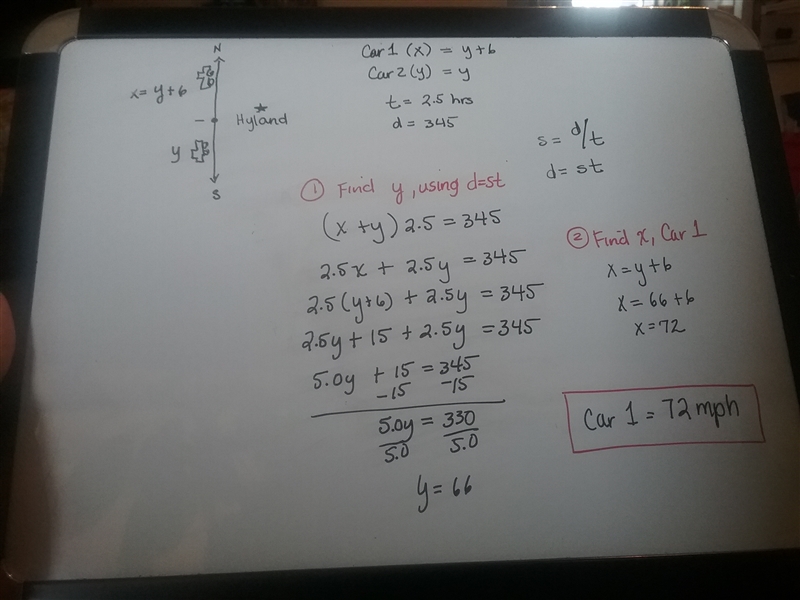 N
x = y+6
Hyland
y
S
Car 1 (x) = y+6
Car 2 (y) = y
t = 2.5 hrs
d = 345
s = d/t
d = st
① Find y, using d=st
(x + y) 2.5 = 345
2.5x + 2.5y = 345
2.5(y+6) + 2.5y = 345
2.5y + 15 + 2.5y = 345
5.0y + 15 = 345
-15 -15
5.0y = 330
5.0 5.0
y = 66
② Find x, Car 1
x = y+6
x = 66+6
x = 72
Car 1 = 72 mph